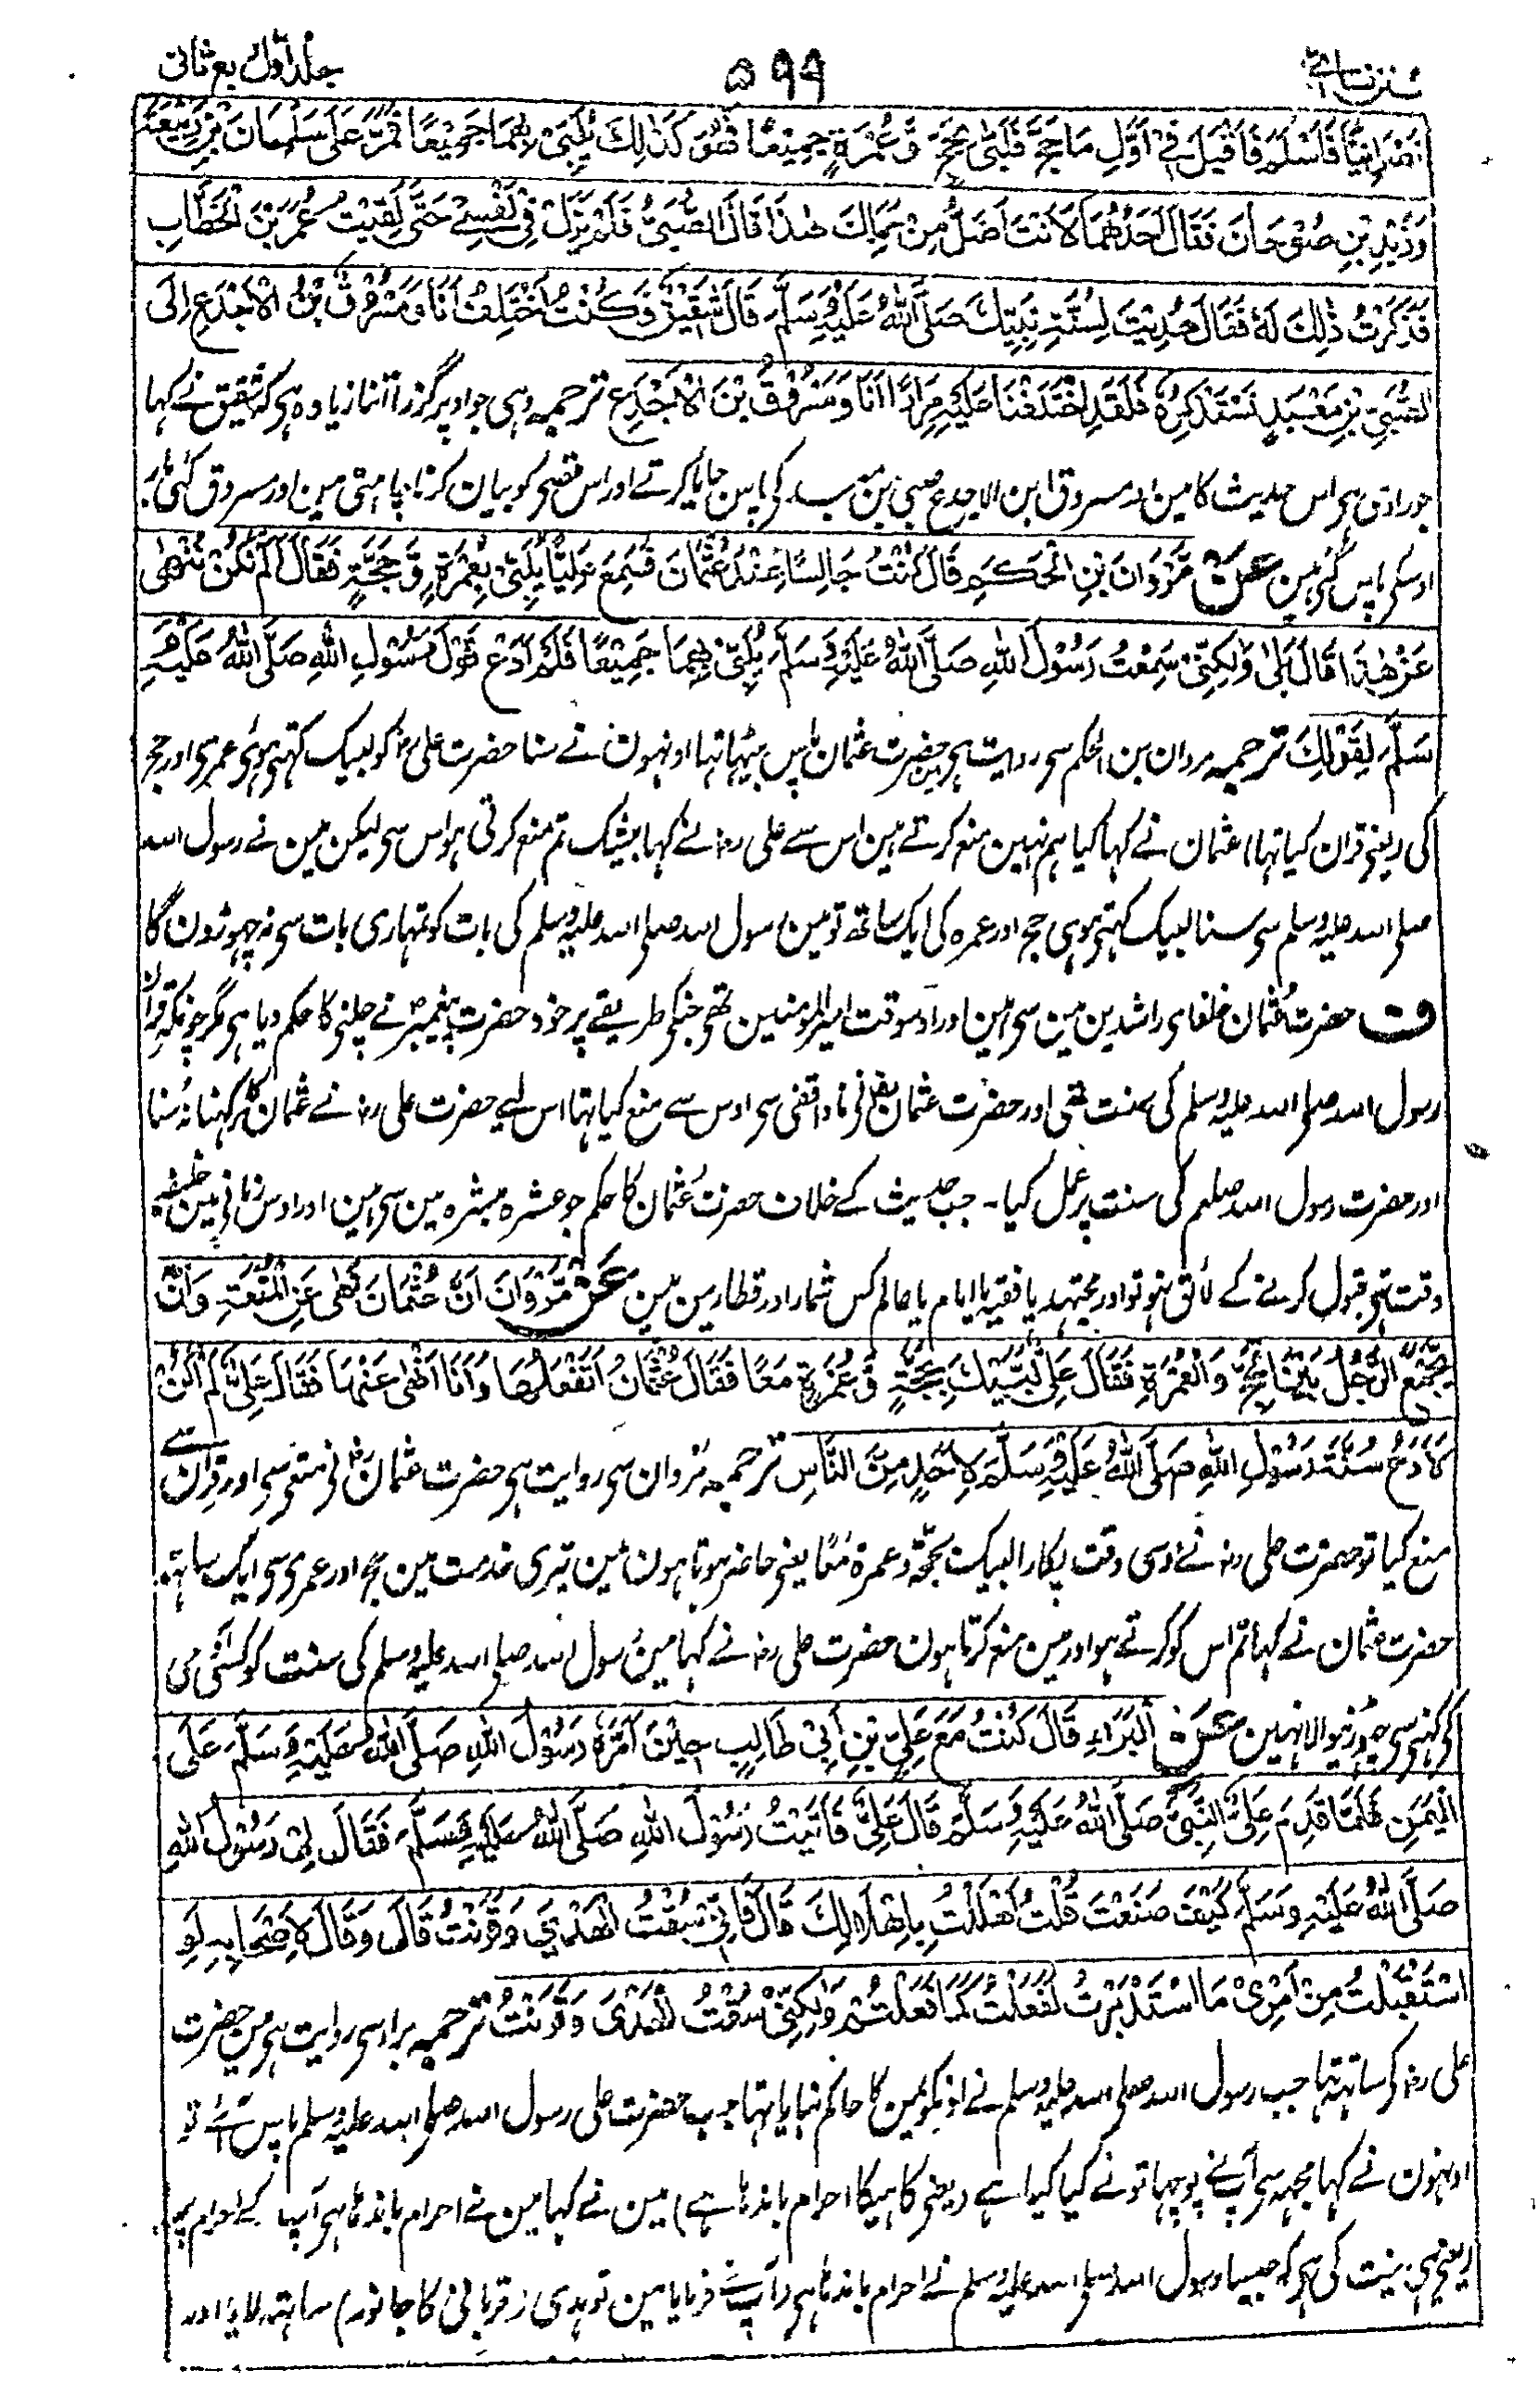 سنن نسائی ۵۹۹ جلد اول ربع ثانی
نَصْرَانِیًّا فَاَسْلَمَ فَاَقْبَلَ فِیْ اَوَّلِ مَا حَجَّ فَلَبّٰی بِحَجٍّ وَّ عُمْرَةٍ جَمِیْعًا فَهُوَ کَذٰلِكَ یُلَبِّیْ بِهِمَا جَمِیْعًا فَمَرَّ عَلٰی سَلْمَانَ بْنِ رَبِیْعَةَ
وَزَیْدِ بْنِ صُوْحَانَ فَقَالَ اَحَدُهُمَا لَاَنْتَ اَضَلُّ مِنْ جَمَلِكَ هٰذَا قَالَ الصُّبَیُّ فَلَمْ یَزَلْ فِیْ نَفْسِیْ حَتّٰی لَقِیْتُ عُمَرَ بْنَ الْخَطَّابِ
فَذَکَرْتُ ذٰلِكَ لَهٗ فَقَالَ هُدِیْتَ لِسُنَّةِ نَبِیِّكَ صَلَّی اللّٰهُ عَلَیْهِ وَسَلَّمَ قَالَ شَقِیْقٌ وَّکُنْتُ اَخْتَلِفُ اَنَا وَمَسْرُوْقُ بْنُ الْاَجْدَعِ اِلَی
الصُّبَیِّ بْنِ مَعْبَدٍ نَسْتَذْکِرُهٗ فَلَقَدِ اخْتَلَفْنَا عَلَیْهِ مِرَارًا اَنَا وَمَسْرُوْقُ بْنُ الْاَجْدَعِ ترجمہ وہی جو اوپر گزرا اتنا زیادہ ہی کہ شقیق نے کہا
جو راوی ہی اس حدیث کا مین اور مسروق ابن الاجدع صبی بن معبد کی پاس جایا کرتے اور اس قصے کو بیان کرنا چاہتی مین اور مسروق کئی بار
اوسکی پاس گئی ہین عَنْ مَّرْوَانَ بْنِ الْحَکَمِ قَالَ کُنْتُ جَالِسًا عِنْدَ عُثْمَانَ فَسَمِعَ عَلِیًّا یُلَبِّیْ بِعُمْرَةٍ وَّحَجَّةٍ فَقَالَ اَلَمْ نَکُنْ نُنْهٰی
عَنْ هٰذَا قَالَ بَلٰی وَلٰکِنِّیْ سَمِعْتُ رَسُوْلَ اللّٰهِ صَلَّی اللّٰهُ عَلَیْهِ وَسَلَّمَ یُلَبِّیْ بِهِمَا جَمِیْعًا فَلَمْ اَدَعْ قَوْلَ رَسُوْلِ اللّٰهِ صَلَّی اللّٰهُ عَلَیْهِ
سَلَّمَ لِقَوْلِكَ ترجمہ مروان بن الحکم سی روایت ہی مین حضرت عثمان پاس بیٹھا تہا اونہون نے سنا حضرت علی رض کو لبیک کہتی ہوی عمری اور حج
کی (یعنی قران کیا تہا) عثمان نے کہا کیا ہم نہین منع کرتے ہین اس سے علی رض نے کہا بیشک تم منع کرتی ہو اس سی لیکن مین نے رسول اللہ
صلی اللہ علیہ وسلم سی سنا لبیک کہتی ہوی حج اور عمرہ کی ایک ساتھ تو مین رسول اللہ صلی اللہ علیہ وسلم کی بات کو تمہاری بات سی نہ چھوڑون گا
ف حضرت عثمان خلفای راشدین مین سی ہین اور اوسوقت امیر المومنین تھی جنکی طریقے پر خود حضرت پیغمبر نے چلنی کا حکم دیا ہی مگر چونکہ قران
رسول اللہ صلی اللہ علیہ وسلم کی سنت تھی اور حضرت عثمان نی ناواقفی سی اوس سے منع کیا تہا اس لیے حضرت علی رض نے عثمان کا کہنا نہ سنا
اور حضرت رسول اللہ صلعم کی سنت پر عمل کیا۔ جب حدیث کے خلاف حضرت عثمان کا حکم جو عشرہ مبشرہ مین سی ہین اور اوس زمانی مین خلیفہ
وقت تہی قبول کرنے کے لائق نہو تو اور مجتہد یا فقیہ یا امام یا عالم کس شمار اور قطار مین ہین عَنْ مَّرْوَانَ اَنَّ عُثْمَانَ نَهٰی عَنِ الْمُتْعَةِ وَاَنْ
یَّجْمَعَ الرَّجُلُ بَیْنَ الْحَجِّ وَالْعُمْرَةِ فَقَالَ عَلِیٌّ لَبَّیْكَ بِحَجَّةٍ وَّعُمْرَةٍ مَعًا فَقَالَ عُثْمَانُ اَتَفْعَلُهَا وَاَنَا اَنْهٰی عَنْهَا فَقَالَ عَلِیٌّ لَمْ اَکُنْ
لِاَدَعَ سُنَّةَ رَسُوْلِ اللّٰهِ صَلَّی اللّٰهُ عَلَیْهِ وَسَلَّمَ لِاَحَدٍ مِنَ النَّاسِ ترجمہ مروان سی روایت ہی حضرت عثمان رض نی متعی سی اور قران سے
منع کیا تو حضرت علی رض نے اوسی وقت پکارا لبیک بحجۃ وعمرۃ معا یعنی حاضر ہوتا ہون مین تیری خدمت مین حج اور عمری سی ایک ساتہہ
حضرت عثمان نے کہا تم اس کو کرتے ہو اور مین منع کرتا ہون حضرت علی رض نے کہا مین رسول اللہ صلی اللہ علیہ وسلم کی سنت کو کسی آدمی
کی کہنی سی چھوڑنیوالا نہین عَنِ الْبَرَاءِ قَالَ کُنْتُ مَعَ عَلِیِّ بْنِ اَبِیْ طَالِبٍ حِیْنَ اَمَّرَهٗ رَسُوْلُ اللّٰهِ صَلَّی اللّٰهُ عَلَیْهِ وَسَلَّمَ عَلَی
الْیَمَنِ فَلَمَّا قَدِمَ عَلَی النَّبِیِّ صَلَّی اللّٰهُ عَلَیْهِ وَسَلَّمَ قَالَ عَلِیٌّ فَاَتَیْتُ رَسُوْلَ اللّٰهِ صَلَّی اللّٰهُ عَلَیْهِ وَسَلَّمَ فَقَالَ لِیْ رَسُوْلُ اللّٰهِ
صَلَّی اللّٰهُ عَلَیْهِ وَسَلَّمَ کَیْفَ صَنَعْتَ قُلْتُ اَهْلَلْتُ بِاِهْلَالِكَ قَالَ فَاِنِّیْ سُقْتُ الْهَدْیَ وَقَرَنْتُ قَالَ وَقَالَ لِاَصْحَابِهٖ لَوِ
اسْتَقْبَلْتُ مِنْ اَمْرِیْ مَا اسْتَدْبَرْتُ لَفَعَلْتُ کَمَا فَعَلْتُمْ وَلٰکِنِّیْ سُقْتُ الْهَدْیَ وَقَرَنْتُ ترجمہ براء سی روایت ہی مین حضرت
علی رض کی ساتہہ تہا جب رسول اللہ صلی اللہ علیہ وسلم نے اونکو یمن کا حاکم بنایا تہا جب حضرت علی رسول اللہ صلی اللہ علیہ وسلم پاس آئے تو
اونہون نے کہا مجہہ سی آپنے پوچھا تونے کیا کیا ہے (یعنی کاہیکا احرام باندہا ہے) مین نے کہا مین نے احرام باندہا ہی آپ کے احرام پر
(یعنی یہی نیت کی ہی کہ جیسا رسول اللہ صلی اللہ علیہ وسلم نے احرام باندہا ہی) آپنے فرمایا مین تو ہدی (قربانی کا جانور) ساتہہ لایا اور